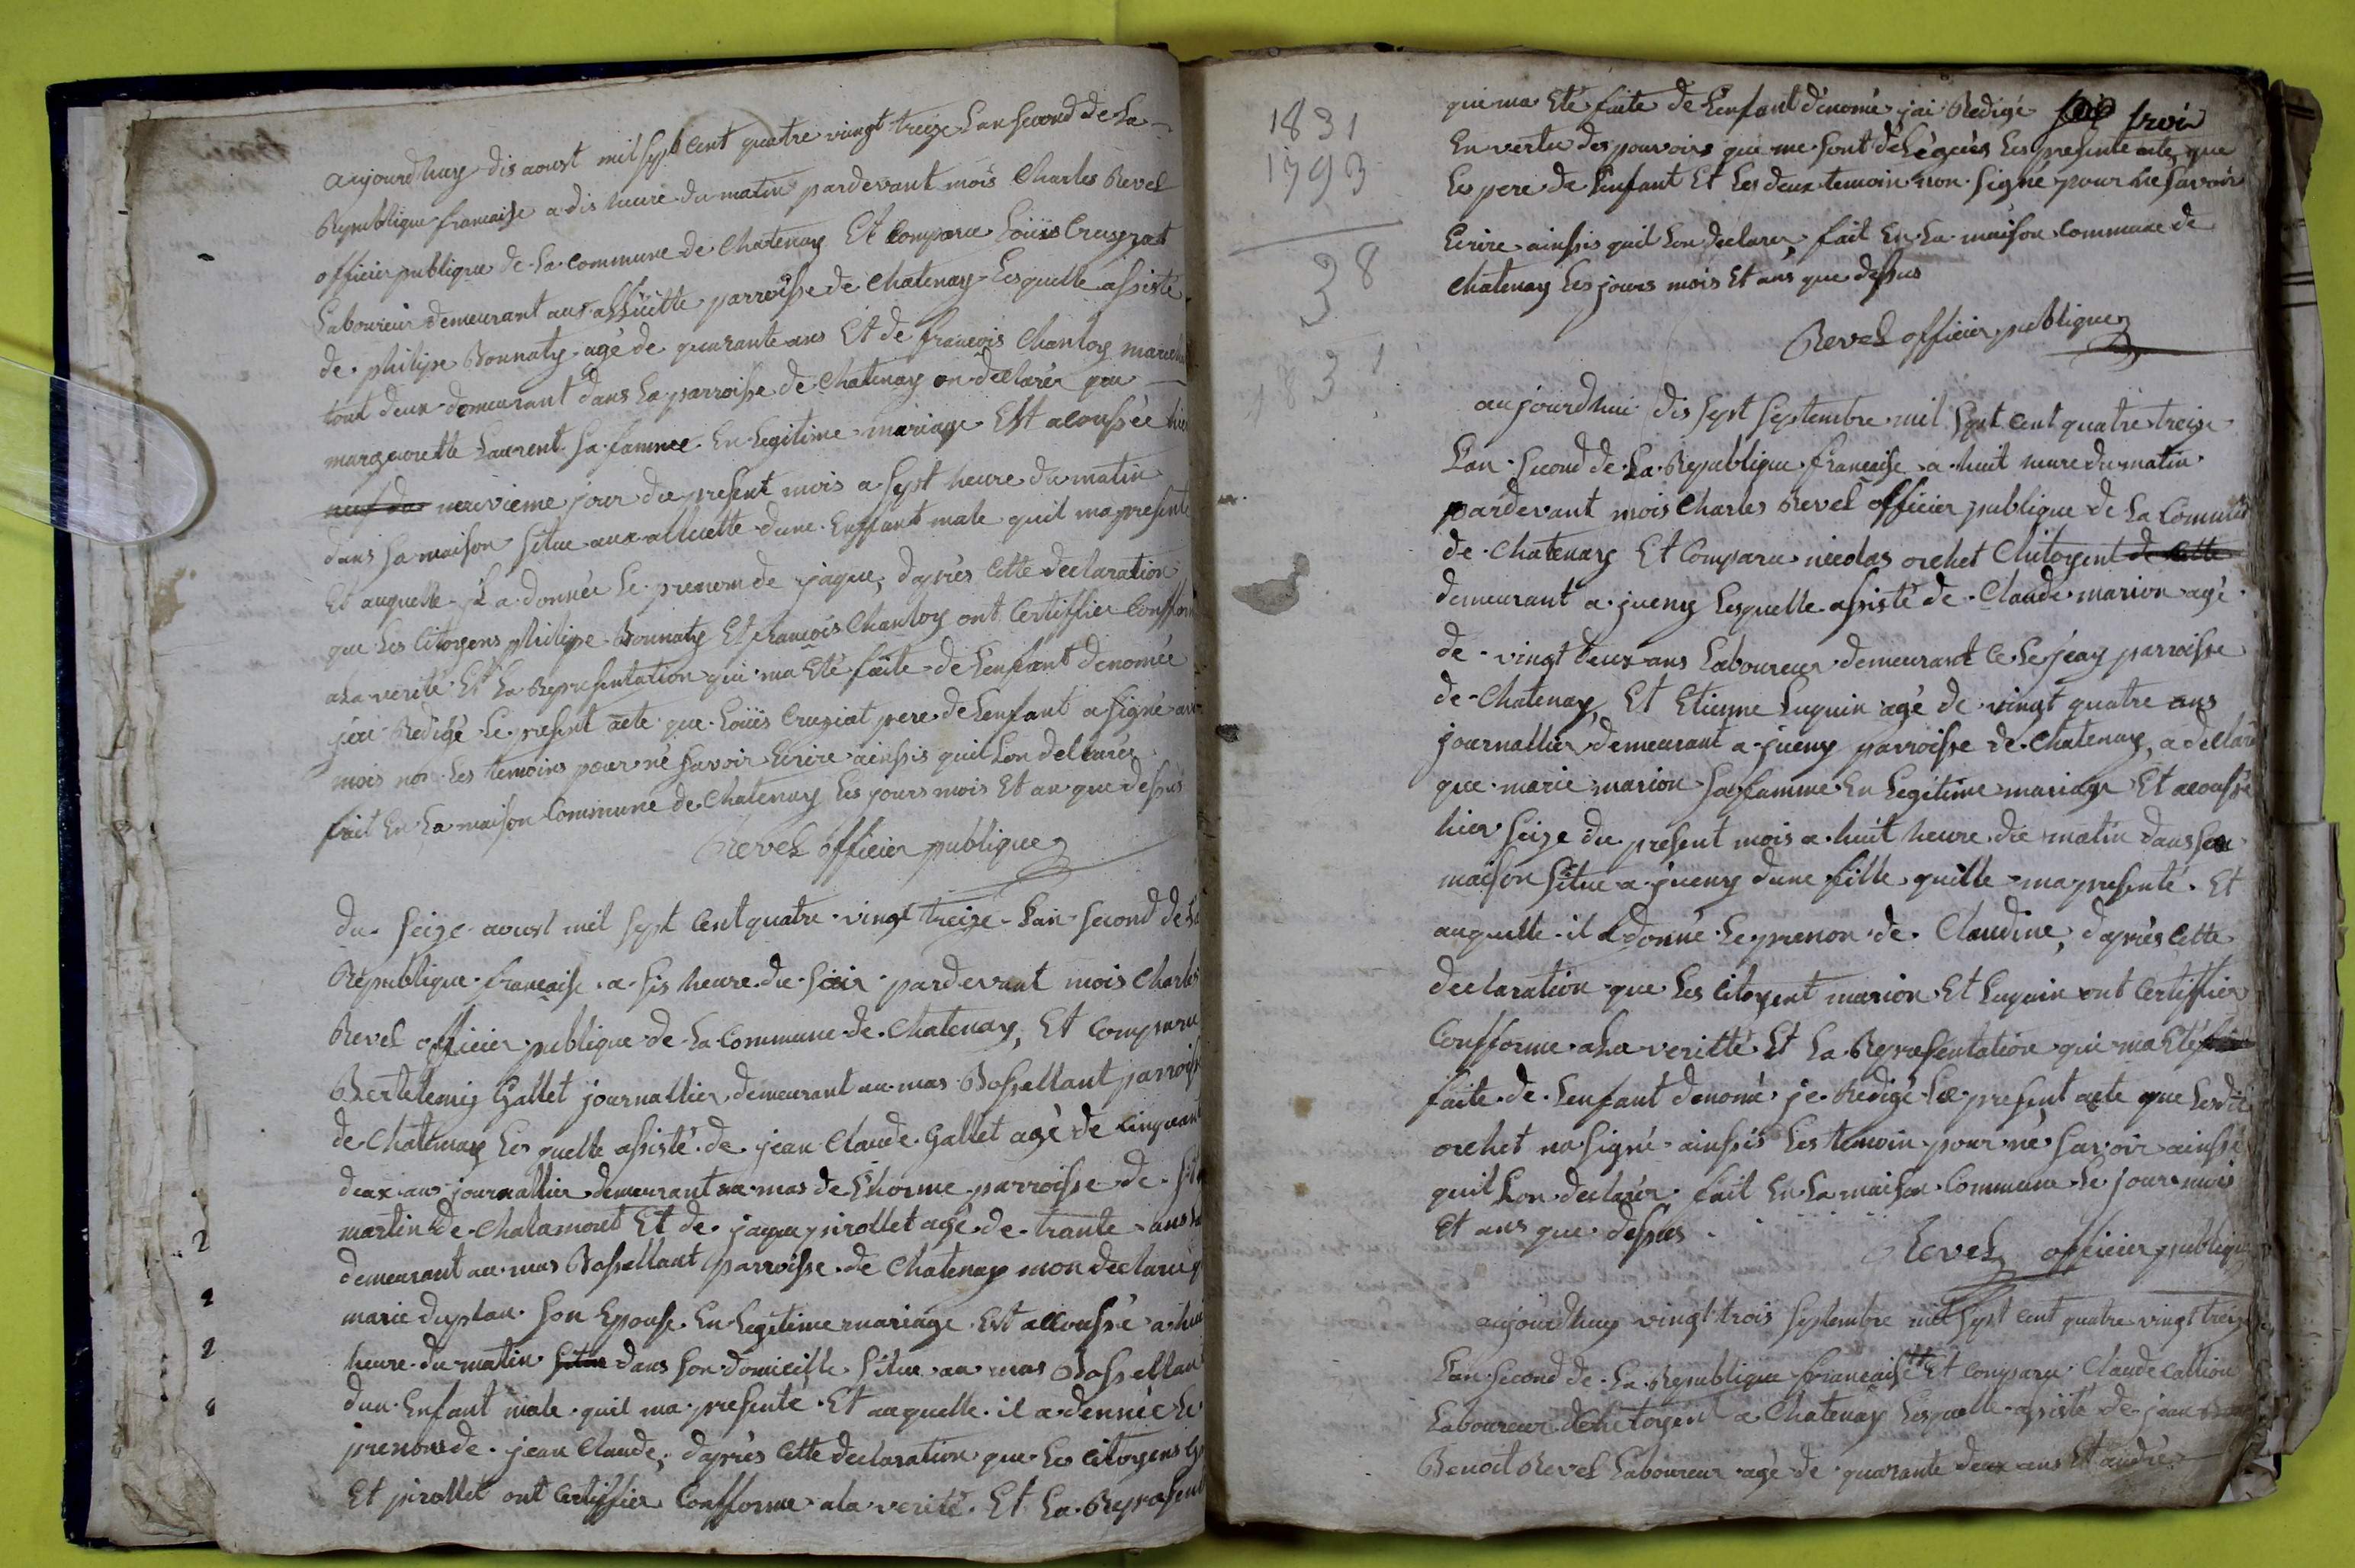 aujourdhuy dis aoust mil sept cent quatre vingt treize Lan second de La
Republique francaise a dis heure du matin pardevant mois Charles Revel
officier publique de La commune de Chatenay Et Comparu Loüis Cruziat
Laboureur demeurant aus allüette parroisse de Chatenay Lesquelle assisté
de philipe Bonnaty agé de quarante ans Et de francois Chanloy
tout deux demeurant dans La parroisse de Chatenay on declarer que
margueritte Laurent sa famme En Legitime mariage Est acoussée hier
neuf du neuvieme jour du present mois a sept heure du matin
dans sa maison situe aux alluette dune Enffant male quil ma presenté
Et auquelle il a donnée Le prenom de jaque, dapres Cette declaration
que Les Citoyens philipe Bonnaty Et francois Chanloy ont Certiffier Confforme
a La verité Et La Representation qui ma Eté faite de Lenfant denomée
jai Redigé Le present acte que Loüis Cruziat pere de Lenfant a signé avec
mois non Les temoins pour né savoir Ecrire ainssis quil Lon declarer
fait En La maison Commune de Chatenay Les jours mois Et an que dessus
Revel officier publique
du seize aoust mil sept Cent quatre vingt treize Lan second de La
Republique francaise a sis heure du soir pardevant mois Charles
Revel officier publique de La Commune de Chatenay, Et Comparu
Bertelemis Gallet journallier demeurant au mas Bossellant parroisse
de Chatenay Lesquelle assisté de jean Claude Gallet agé de Cinquante
deux ans journallier demeurant au mas de L'horme parroisse de St
martin de Chalamont Et de jaque pirollet agé de trante ans
demeurant au mas Bossellant parroisse de Chatenay mon declaré
marie duplan son Epouse En Legitime mariage Est accoussé a huit
heure du matin situe dans son domicille situe au mas Bossellant
dun Enfant male quil ma presenté Et auquelle il a donnée Le
prenom de jean Claude, dapres Cette declaration que Les Citoyens
Et pirollet ont Certiffier Confforme a la verité Et La Represent
1831
1793
38
1831
qui ma Eté faite de Lenfant dénomé jai Redigé
En vertu des pouvoirs qui me sont délégués Les presente acte que
Les pere de Lenfant Et Les deux temoin non signé pour ne savoir
Ecrire ainssis quil Lon declarer fait En La maison Commune de
Chatenay Les jours mois Et ans que dessus
Revel officier publique
aujourdhui dis sept septembre mil sept Cent quatre treize
Lan second de La Republique francaise a huit heure du matin
pardevant mois Charles Revel officier publique de La Commune
de Chatenay Et Comparu nicolas ochet Chitoyent de Cette
demeurant a jueny Lesquelle assisté de Claude marion agé
de vingt deux ans Laboureur demeurant parroisse
de Chatenay, Et Etienne Luquin agé de vingt quatre ans
journallier demeurant a jueny parroisse de Chatenay, a declaré
que marie marion sa famme En Legitime mariage Et acoussé
hier seize du present mois a huit heure du matin dans sa
maison situe a jueny dune fille quille ma presenté Et
auquelle il a donné Le prenon de Claudine, dapres Cette
declaration que Les Citoyent marion Et Luquin ont Certiffier
Confforme a La veritté Et La Representation qui ma Eté
faite de Lenfant denomé je Redigé Le present acte que Lesdit
ochet na signé ainssis Les temoin pour né savoir ainssi
quil Lon declarer fait En La maison Commune Le jour mois
Et ans que dessus
Revel officier publique
aujourdhuy vingt trois septembre mil sept cent quatre vingt treize
Lan second de La Republique francaise Et Comparu Claude Callion
Laboureur a Chatenay Lesquelle assisté de jean
Benoit Revel Laboureur agé de quarante deux ans Et andré